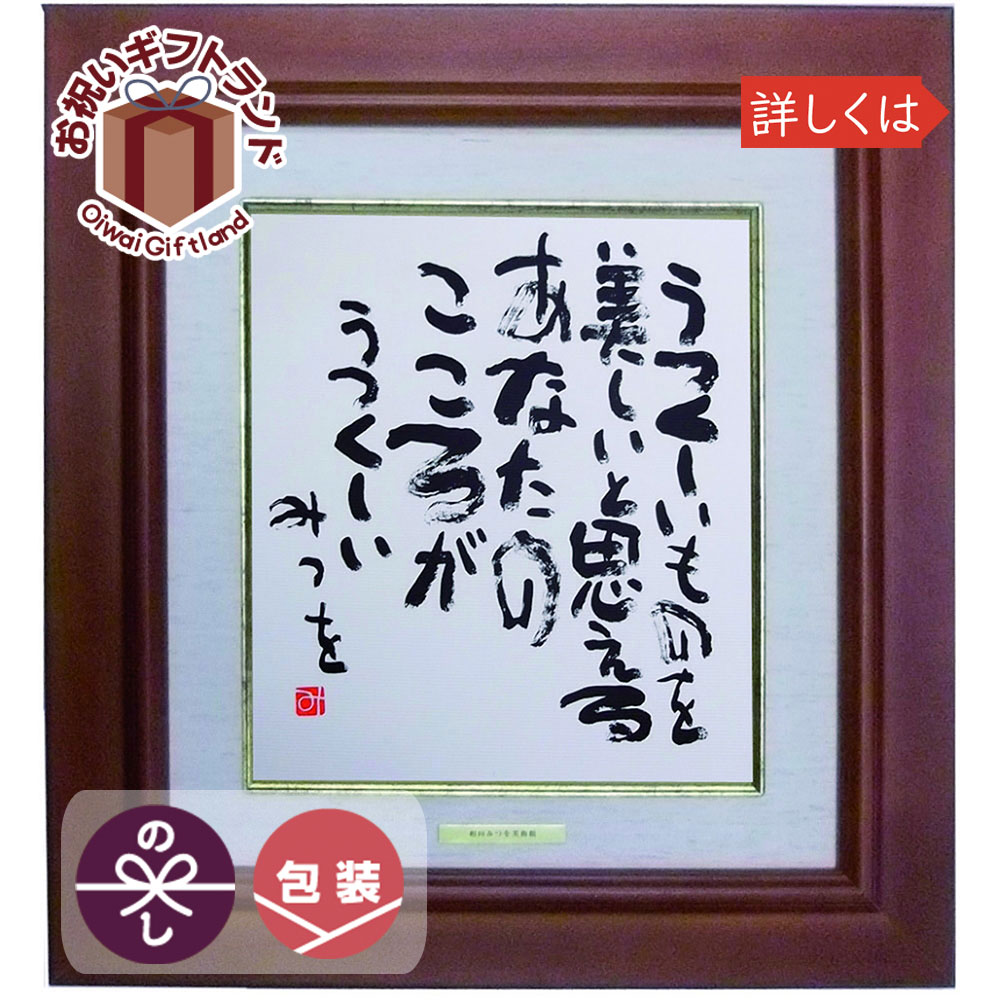 お祝いギフトランド
Oiwai Giftland
詳しくは
うつくしいものを
美しいと思える
あなたの
こころが
うつくしい
みつを
み
相田みつを美術館
のし
包装